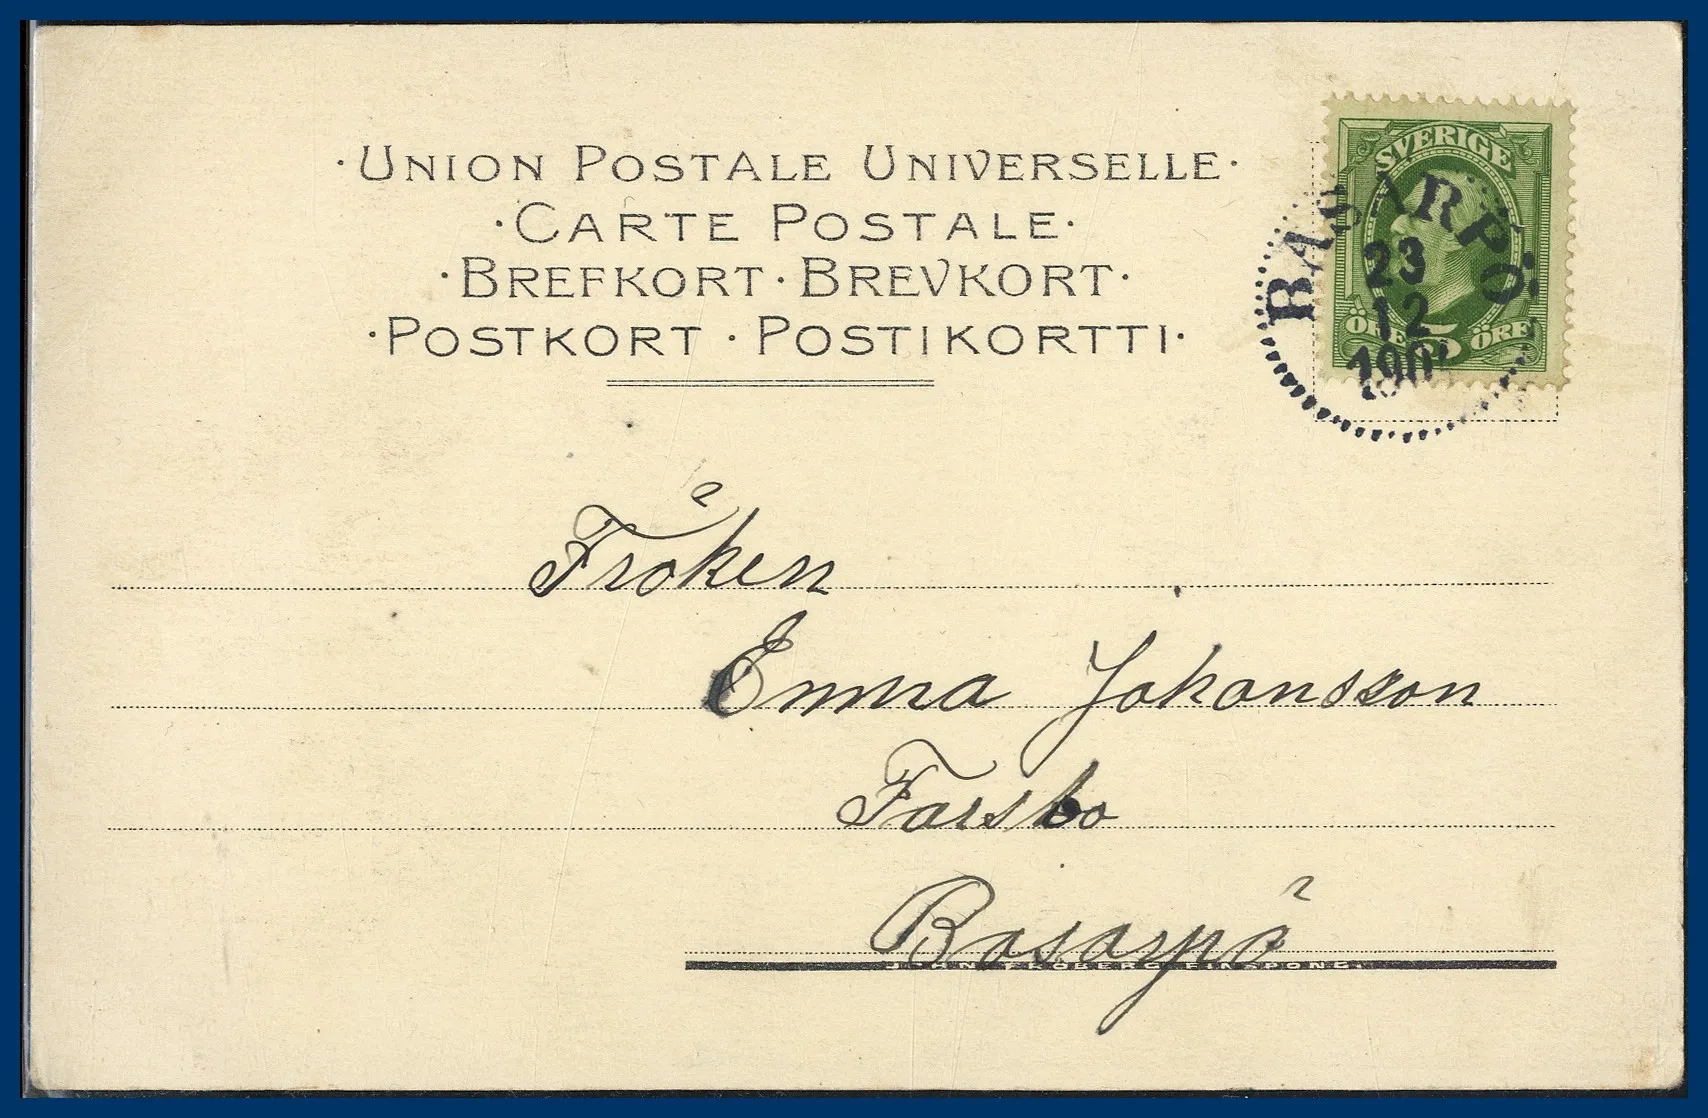 ·UNION POSTALE UNIVERSELLE·
·CARTE POSTALE·
·BREFKORT·BREVKORT·
·POSTKORT·POSTIKORTTI·
SVERIGE
ÖRE 5 ÖRE
BASARPÖ
23
12
190
Fröken
Emma Johansson
Farsbo
Basarpö